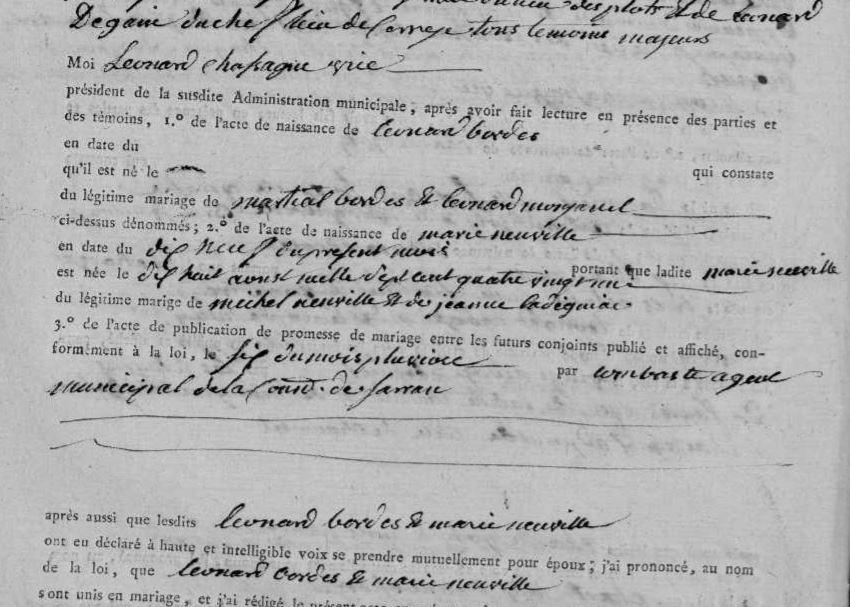 des plats & de Leonard
Degain huche de Correze tous temoins majeurs
Moi Leonard Chassagne
président de la susdite Administration municipale, après avoir fait lecture en présence des parties et
des témoins, 1.º de l'acte de naissance de leonard bordes
en date du
qu'il est né le qui constate
du légitime mariage de martial bordes & leonard
ci-dessus dénommés; 2.º de l'acte de naissance de marie neuville
en date du dix neuf du present mois
est née le dix huit aoust mille sept cent quatre vingt portant que ladite marie neuville
du légitime marige de michel neuville & de jeanne
3.º de l'acte de publication de promesse de mariage entre les futurs conjoints publié et affiché, con-
formément à la loi, le six du mois pluviose par combaste agent
municipal de la Comne. de sarran
après aussi que lesdits leonard bordes & marie neuville
ont eu déclaré à haute et intelligible voix se prendre mutuellement pour époux; j'ai prononcé, au nom
de la loi, que leonard bordes & marie neuville
sont unis en mariage, et j'ai rédigé le présent acte